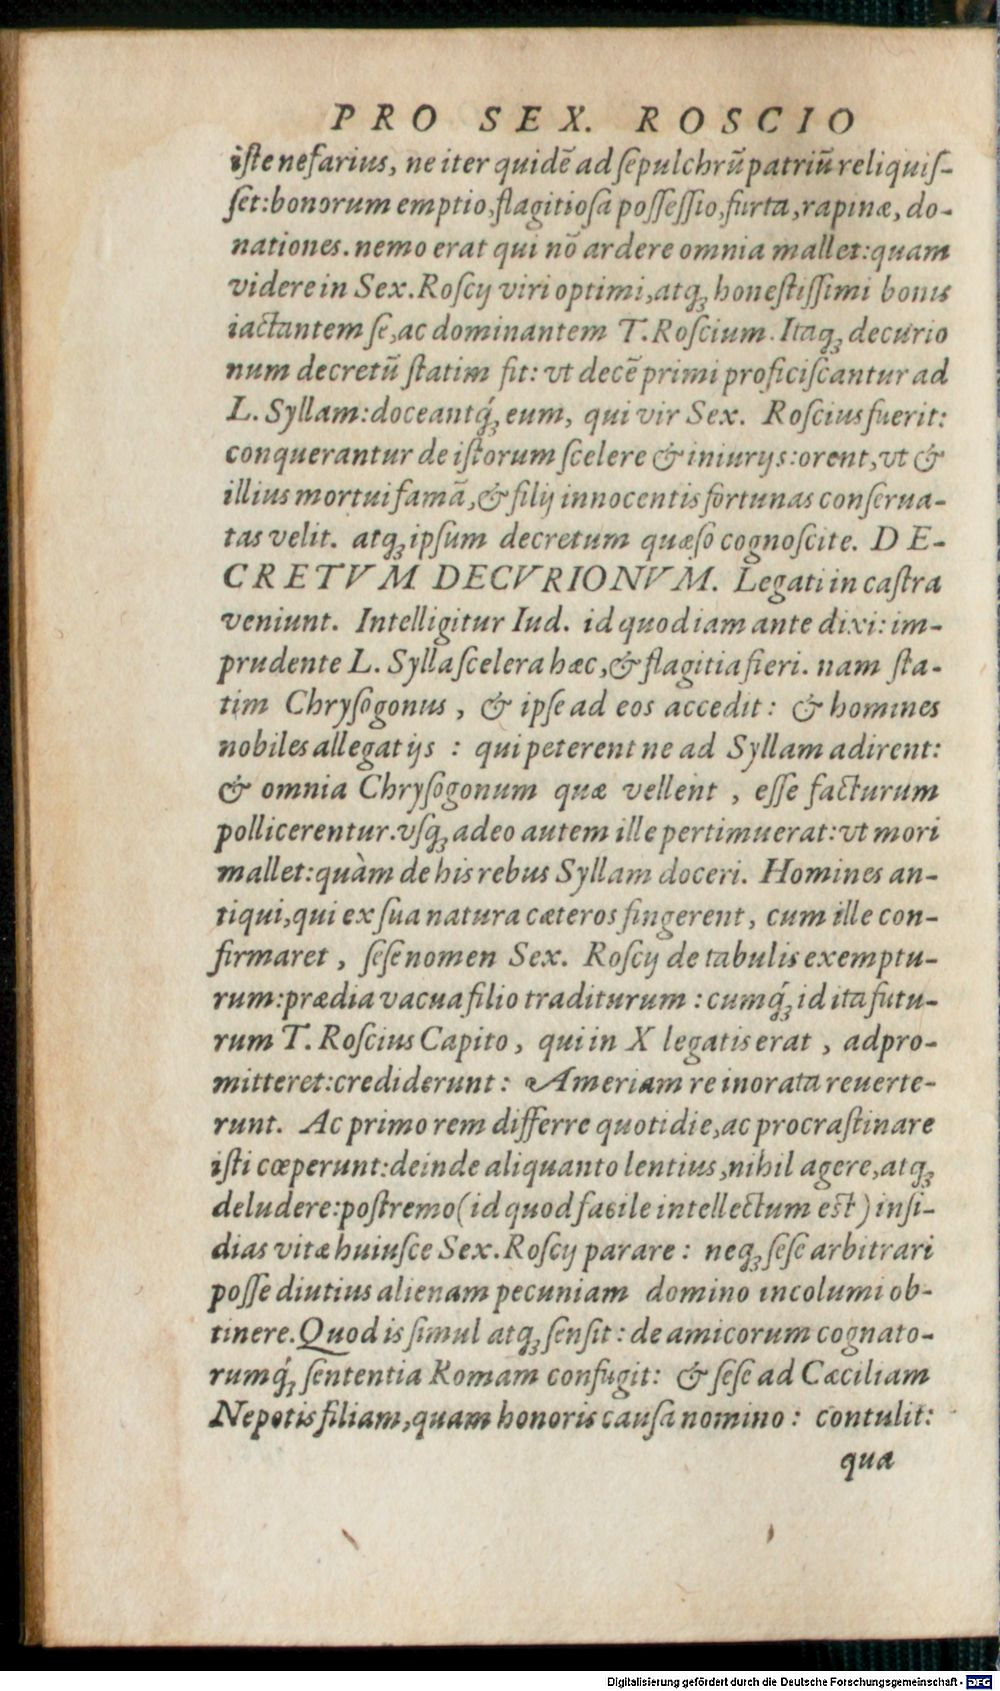 PRO SEX. ROSCIO
iſte nefarius, ne iter quidē ad ſepulchrū patriū reliquiſ-
ſet: bonorum emptio, flagitioſa poſſeſſio, furta, rapinæ, do-
nationes. nemo erat qui nō ardere omnia mallet: quam
videre in Sex. Roſcij viri optimi, atq; honeſtiſſimi bonis
iactantem ſe, ac dominantem T. Roſcium. Itaq; decurio
num decretū ſtatim fit: vt decē primi proficiſcantur ad
L. Syllam: doceantq́; eum, qui vir Sex. Roſcius fuerit:
conquerantur de iſtorum ſcelere & iniurijs: orent, vt &
illius mortui famā, & filij innocentis fortunas conſerua-
tas velit. atq; ipſum decretum quæſo cognoſcite. DE-
CRETVM DECVRIONVM. Legati in caſtra
veniunt. Intelligitur Iud. id quod iam ante dixi: im-
prudente L. Sylla ſcelera hæc, & flagitia fieri. nam ſta-
tim Chryſogonus, & ipſe ad eos accedit: & homines
nobiles allegat ijs: qui peterent ne ad Syllam adirent:
& omnia Chryſogonum quæ vellent, eſſe facturum
pollicerentur. vſq; adeo autem ille pertimuerat: vt mori
mallet: quàm de his rebus Syllam doceri. Homines an-
tiqui, qui ex ſua natura cæteros fingerent, cum ille con-
firmaret, ſeſe nomen Sex. Roſcij de tabulis exemptu-
rum: prædia vacua filio traditurum: cumq́; id ita futu-
rum T. Roſcius Capito, qui in X legatis erat, adpro-
mitteret: crediderunt: Ameriam re inorata reuerte-
runt. Ac primo rem differre quotidie, ac procraſtinare
iſti cœperunt: deinde aliquanto lentius, nihil agere, atq;
deludere: poſtremo (id quod facile intellectum eſt) inſi-
dias vitæ huiuſce Sex. Roſcij parare: neq; ſeſe arbitrari
poſſe diutius alienam pecuniam domino incolumi ob-
tinere. Quod is ſimul atq; ſenſit: de amicorum cognato-
rumq́; ſententia Romam confugit: & ſeſe ad Cæciliam
Nepotis filiam, quam honoris cauſa nomino: contulit:
qua
Digitalisierung gefördert durch die Deutsche Forschungsgemeinschaft - DFG